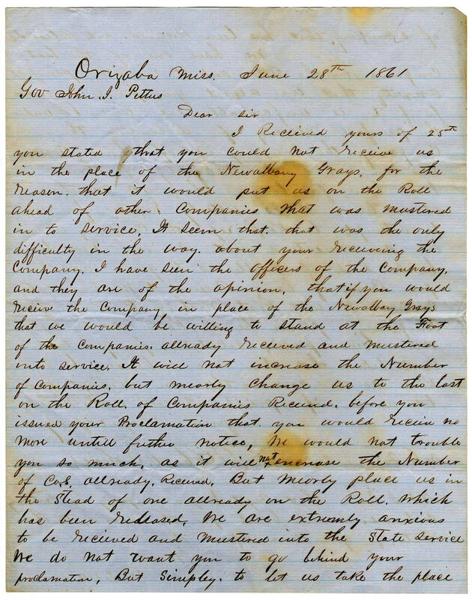 Orizaba Miss. June 28th 1861
Gov John J. Pettus
Dear sir
I Received yours of 25th
you stated that you could not receive us
in the place of the Newalbany Grays. for the
reason. that it would put us on the Roll
ahead of other Companies that was mustered
in to service. It seem that. that was the only
difficulty in the way. about your receiveing the
Company. I have seen the officers of the Company.
and they are of the opinion. that if you would
receive the Company, in place of the Newalbay Grays
that we would be willing to stand at the Foot
of the Companies. allready received and mustered
into service. It will not increase the Number
of Companies. but mearly change us to the last
on the Roll. of Companies Received. before you
issued your Proclamation that you would receive no
more untill futher notice, We would not trouble
you so much, as it will not encrease the Number
of Co,s, allready. Received. But mearly place us in
the Stead of one allready on the Roll. which
has been released, We are extremly anxious
to be received and mustered into the State service
We do not want you to go behind your
proclamation, But Simpley. to let us take the place